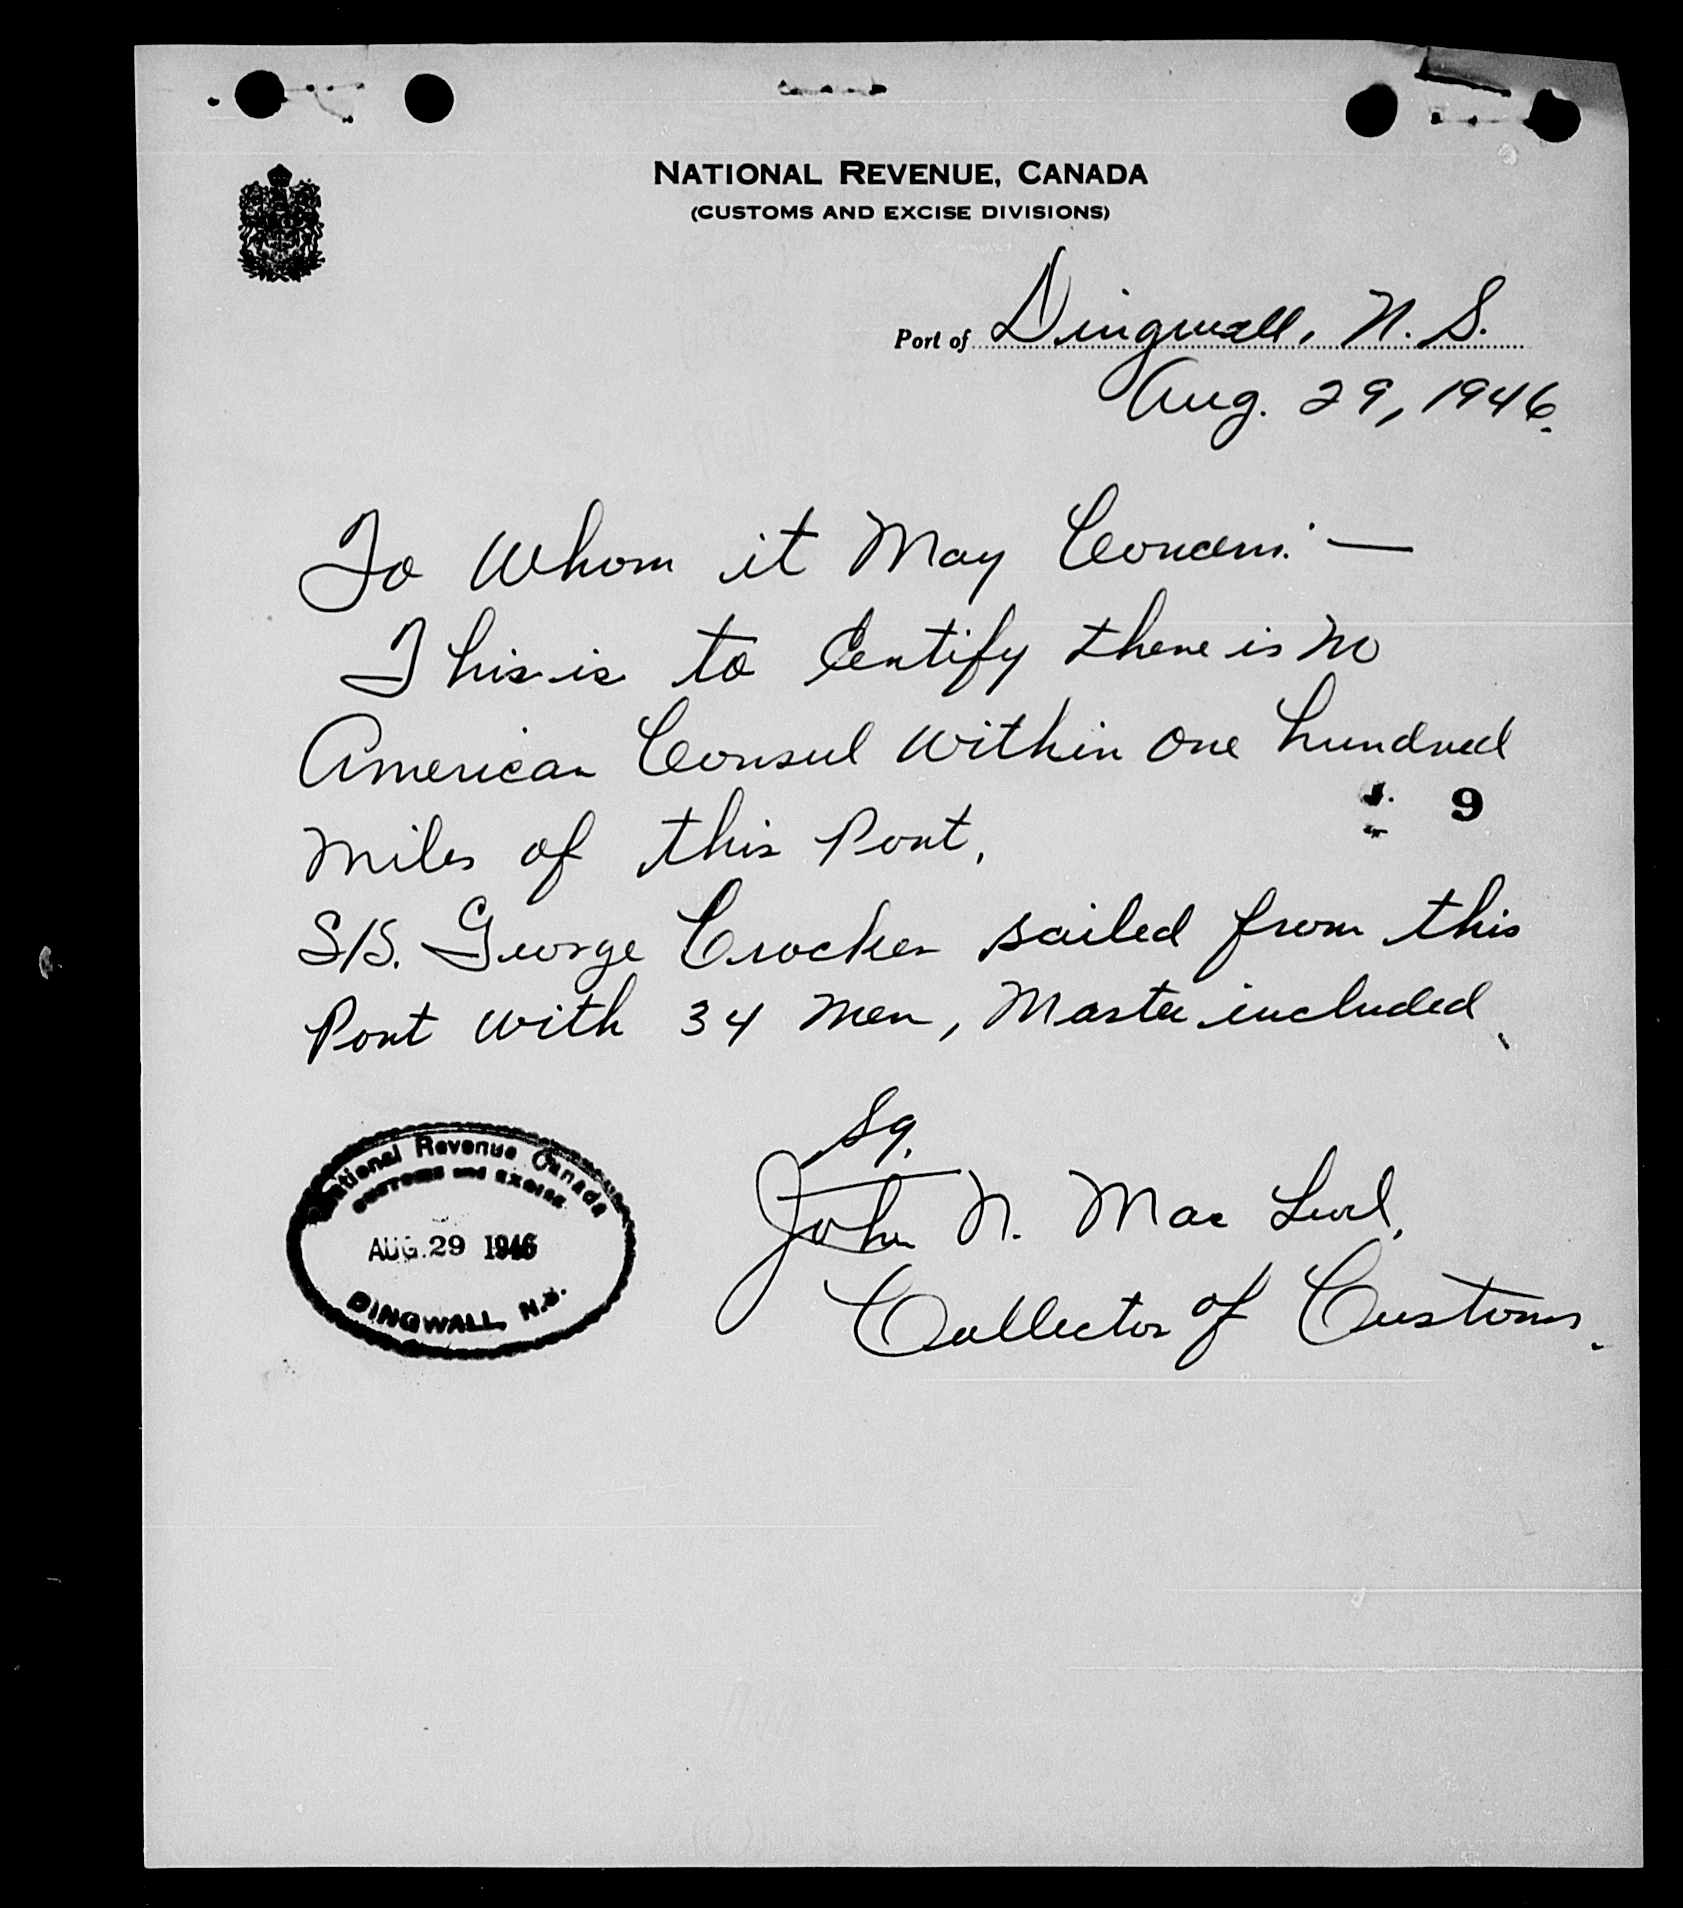 NATIONAL REVENUE, CANADA
(CUSTOMS AND EXCISE DIVISIONS)
Port of Dingwall, N. S.
Aug. 29, 1946.
To Whom it May Concern: —
This is to Certify there is no
American Consul within one hundred
miles of this Port.
9
S/S. George Crocker sailed from this
Port with 34 men, Master included.
Sg.
John N. Mac
Collector of Customs.
National Revenue Canada
CUSTOMS and EXCISE
AUG. 29 1946
DINGWALL, N.S.